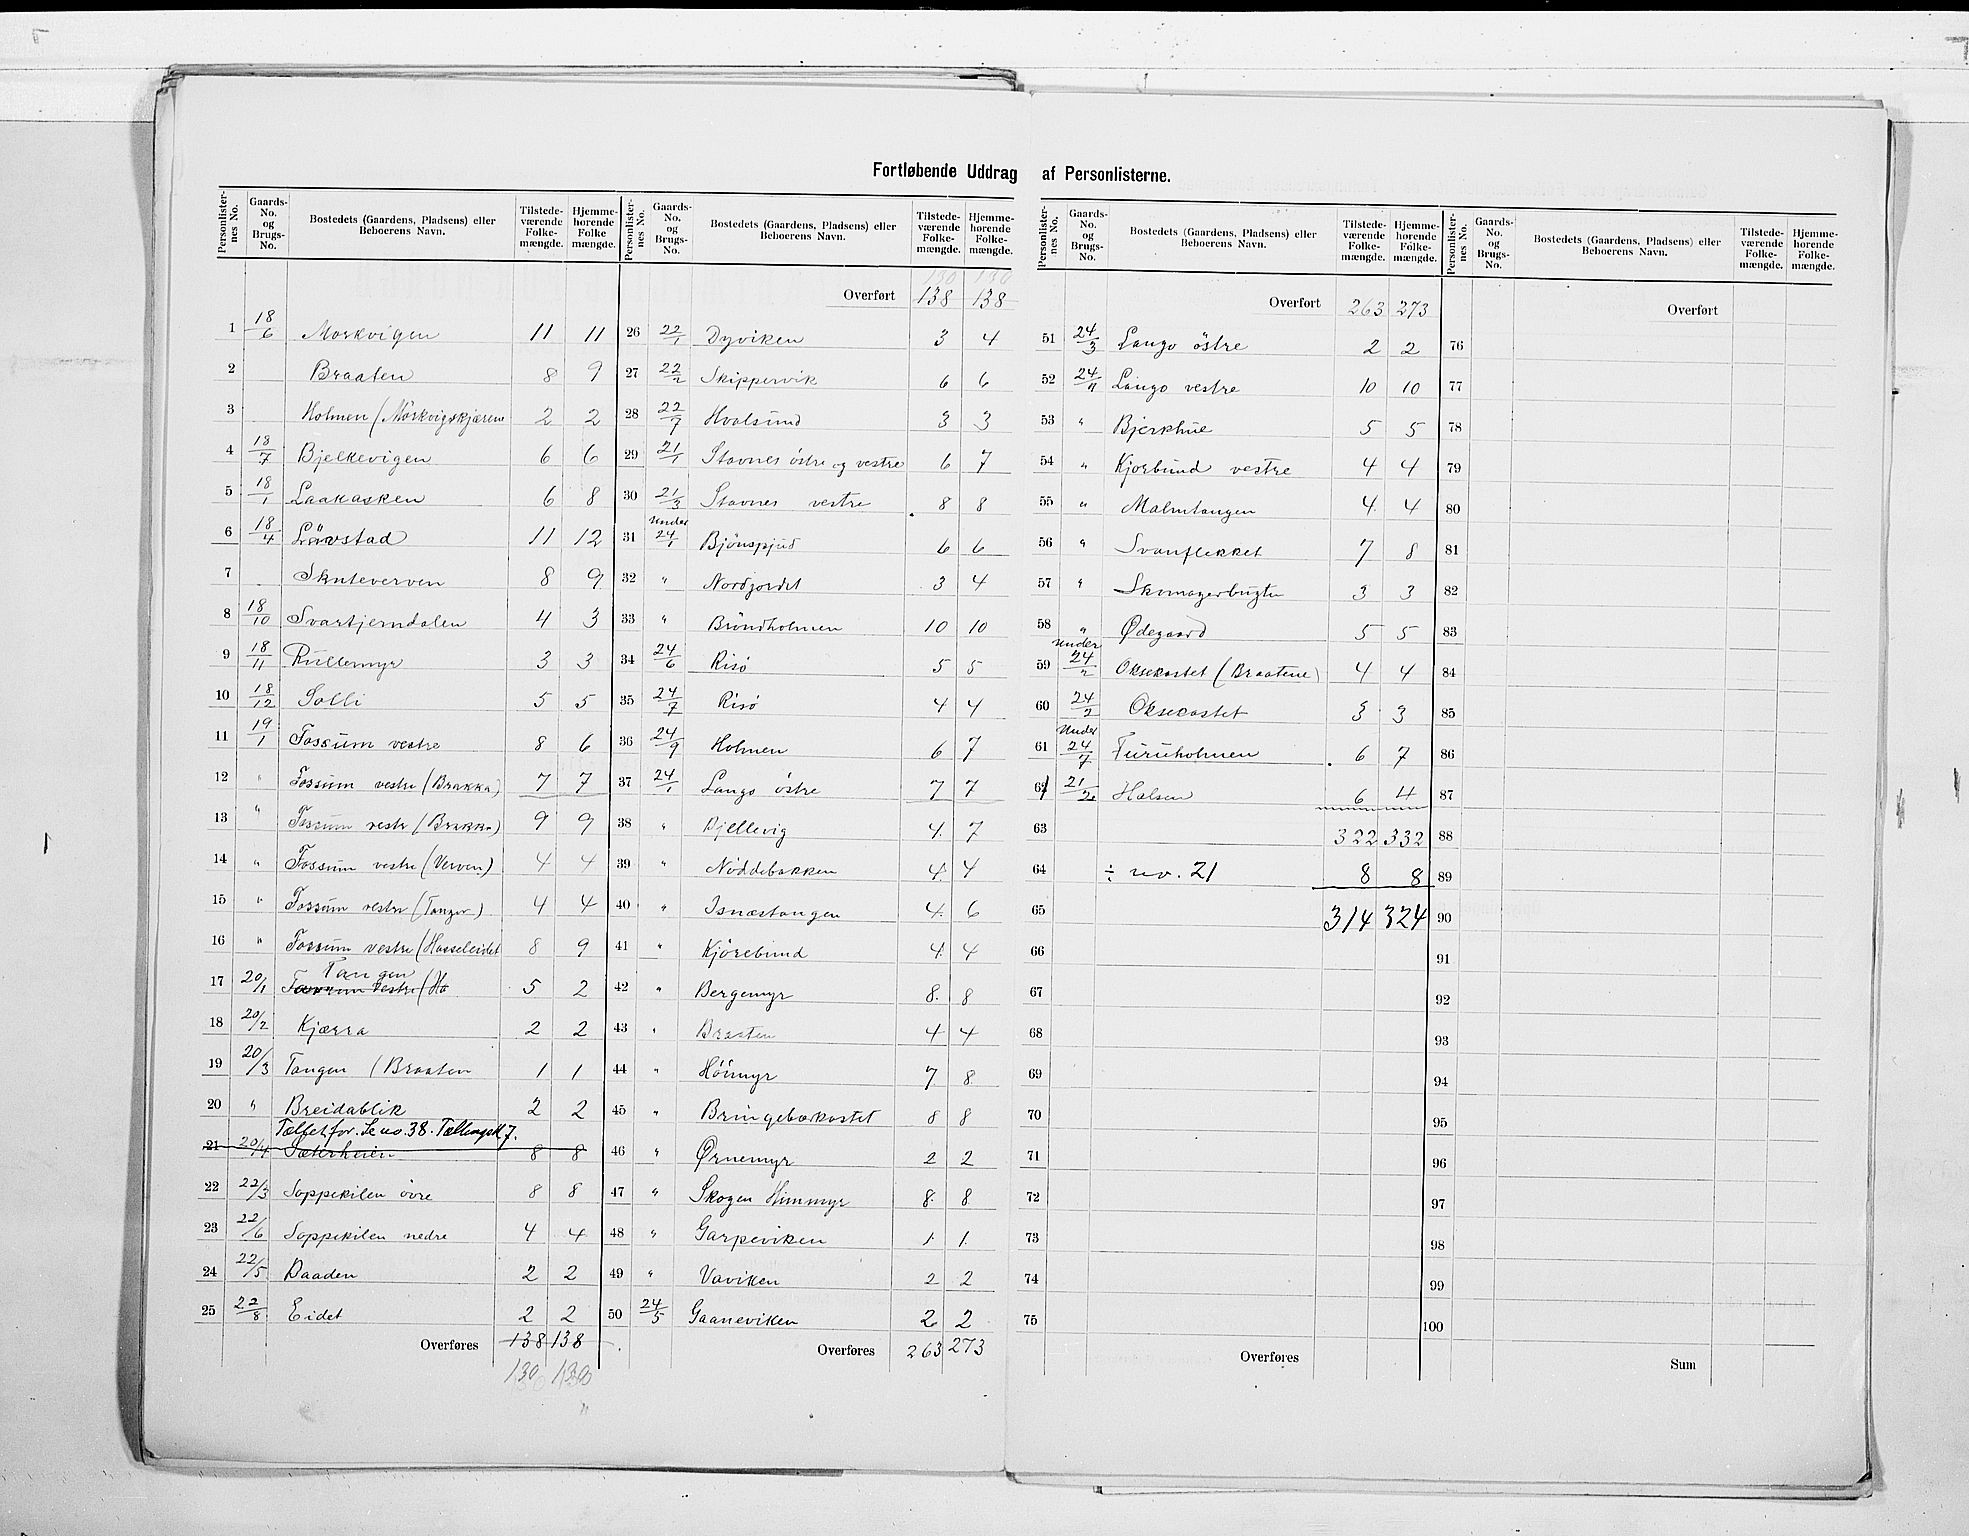 Fortløbende Uddrag af Personlisterne.
Personlisternes No. Gaards-No. og Brugs-No. Bostedets (Gaardens, Pladsens) eller Beboerens Navn. Tilstedeværende Folkemængde. Hjemmehørende Folkemængde.
1 18/6 Morkvigen 11 11
2 Braaten 8 9
3 Holmen (Mörkvigskjærene 2 2
4 18/7 Bjelkevigen 6 6
5 18/1 Laakasken 6 8
6 18/4 Lövstad 11 12
7 Skuteverven 8 9
8 18/10 Svartjerndalen 4 3
9 18/11 Rullemyr 3 3
10 18/12 Solli 5 5
11 19/1 Fossum vestre 8 6
12 " Fossum vestre (Brakka) 7 7
13 " Fossum vestre (Brakka) 9 9
14 " Fossum vestre (Verven) 4 4
15 " Fossum vestre (Tangen) 4 4
16 " Fossum vestre (Hasseleidet 8 9
Tangen
17 20/1 Fossum vestre (Ha 5 2
18 20/2 Kjærra 2 2
19 20/3 Tangen (Braaten 1 1
20 " Breidablik 2 2
Tællet for. Se no. 38. Tællingsk 7.
21 20/4 Sæterheien 8 8
22 22/3 Soppekilen övre 8 8
23 22/6 Soppekilen nedre 4 4
24 22/5 Baaden 2 2
25 22/8 Eidet 2 2
Overføres 138 138
130 130
Personlisternes No. Gaards-No. og Brugs-No. Bostedets (Gaardens, Pladsens) eller Beboerens Navn. Tilstedeværende Folkemængde. Hjemmehørende Folkemængde.
130 130
Overført 138 138
26 22/1 Dyviken 3 4
27 22/2 Skippervik 6 6
28 22/7 Hvalsund 3 3
29 21/1 Stavnes östre og vestre 6 7
30 21/3 Stavnes vestre 8 8
under
31 24/1 Bjönspjud 6 6
32 " Nordjordet 3 4
33 " Bröndholmen 10 10
34 24/6 Risø 5 5
35 24/7 Risø 4 4
36 24/9 Holmen 6 7
37 24/1 Langø östre 7 7
38 " Bjellevig 4 7
39 " Nøddebakken 4 4
40 " Isnæstangen 4 6
41 " Kjörebund 4 4
42 " Bergemyr 8 8
43 " Braaten 4 4
44 " Hönmyr 7 8
45 " Bringebærkastet 8 8
46 " Ørnemyr 2 2
47 " Skogen Himmyr 8 8
48 " Garpeviken 1 1
49 " Vaviken 2 2
50 24/5 Gaaneviken 2 2
Overføres 263 273
Personlisternes No. Gaards-No. og Brugs-No. Bostedets (Gaardens, Pladsens) eller Beboerens Navn. Tilstedeværende Folkemængde. Hjemmehørende Folkemængde.
Overført 263 273
51 24/3 Langø östre 2 2
52 24/11 Langø vestre 10 10
53 " Bjerkhue 5 5
54 " Kjorbund vestre 4 4
55 " Malmtangen 4 4
56 " Svanflekket 7 8
57 " Skomagerbugta 3 3
58 " Ødegaard 5 5
under
59 24/2 Oksekastet (Braatene) 4 4
60 24/2 Oksekastet 3 3
Under
61 24/7 Furuholmen 6 7
62 21/2 Halsen 6 4
63 322 332
64 ÷ no. 21 8 8
65 314 324
66
67
68
69
70
71
72
73
74
75
Overføres
Personlisternes No. Gaards-No. og Brugs-No. Bostedets (Gaardens, Pladsens) eller Beboerens Navn. Tilstedeværende Folkemængde. Hjemmehørende Folkemængde.
Overført
76
77
78
79
80
81
82
83
84
85
86
87
88
89
90
91
92
93
94
95
96
97
98
99
100
Sum